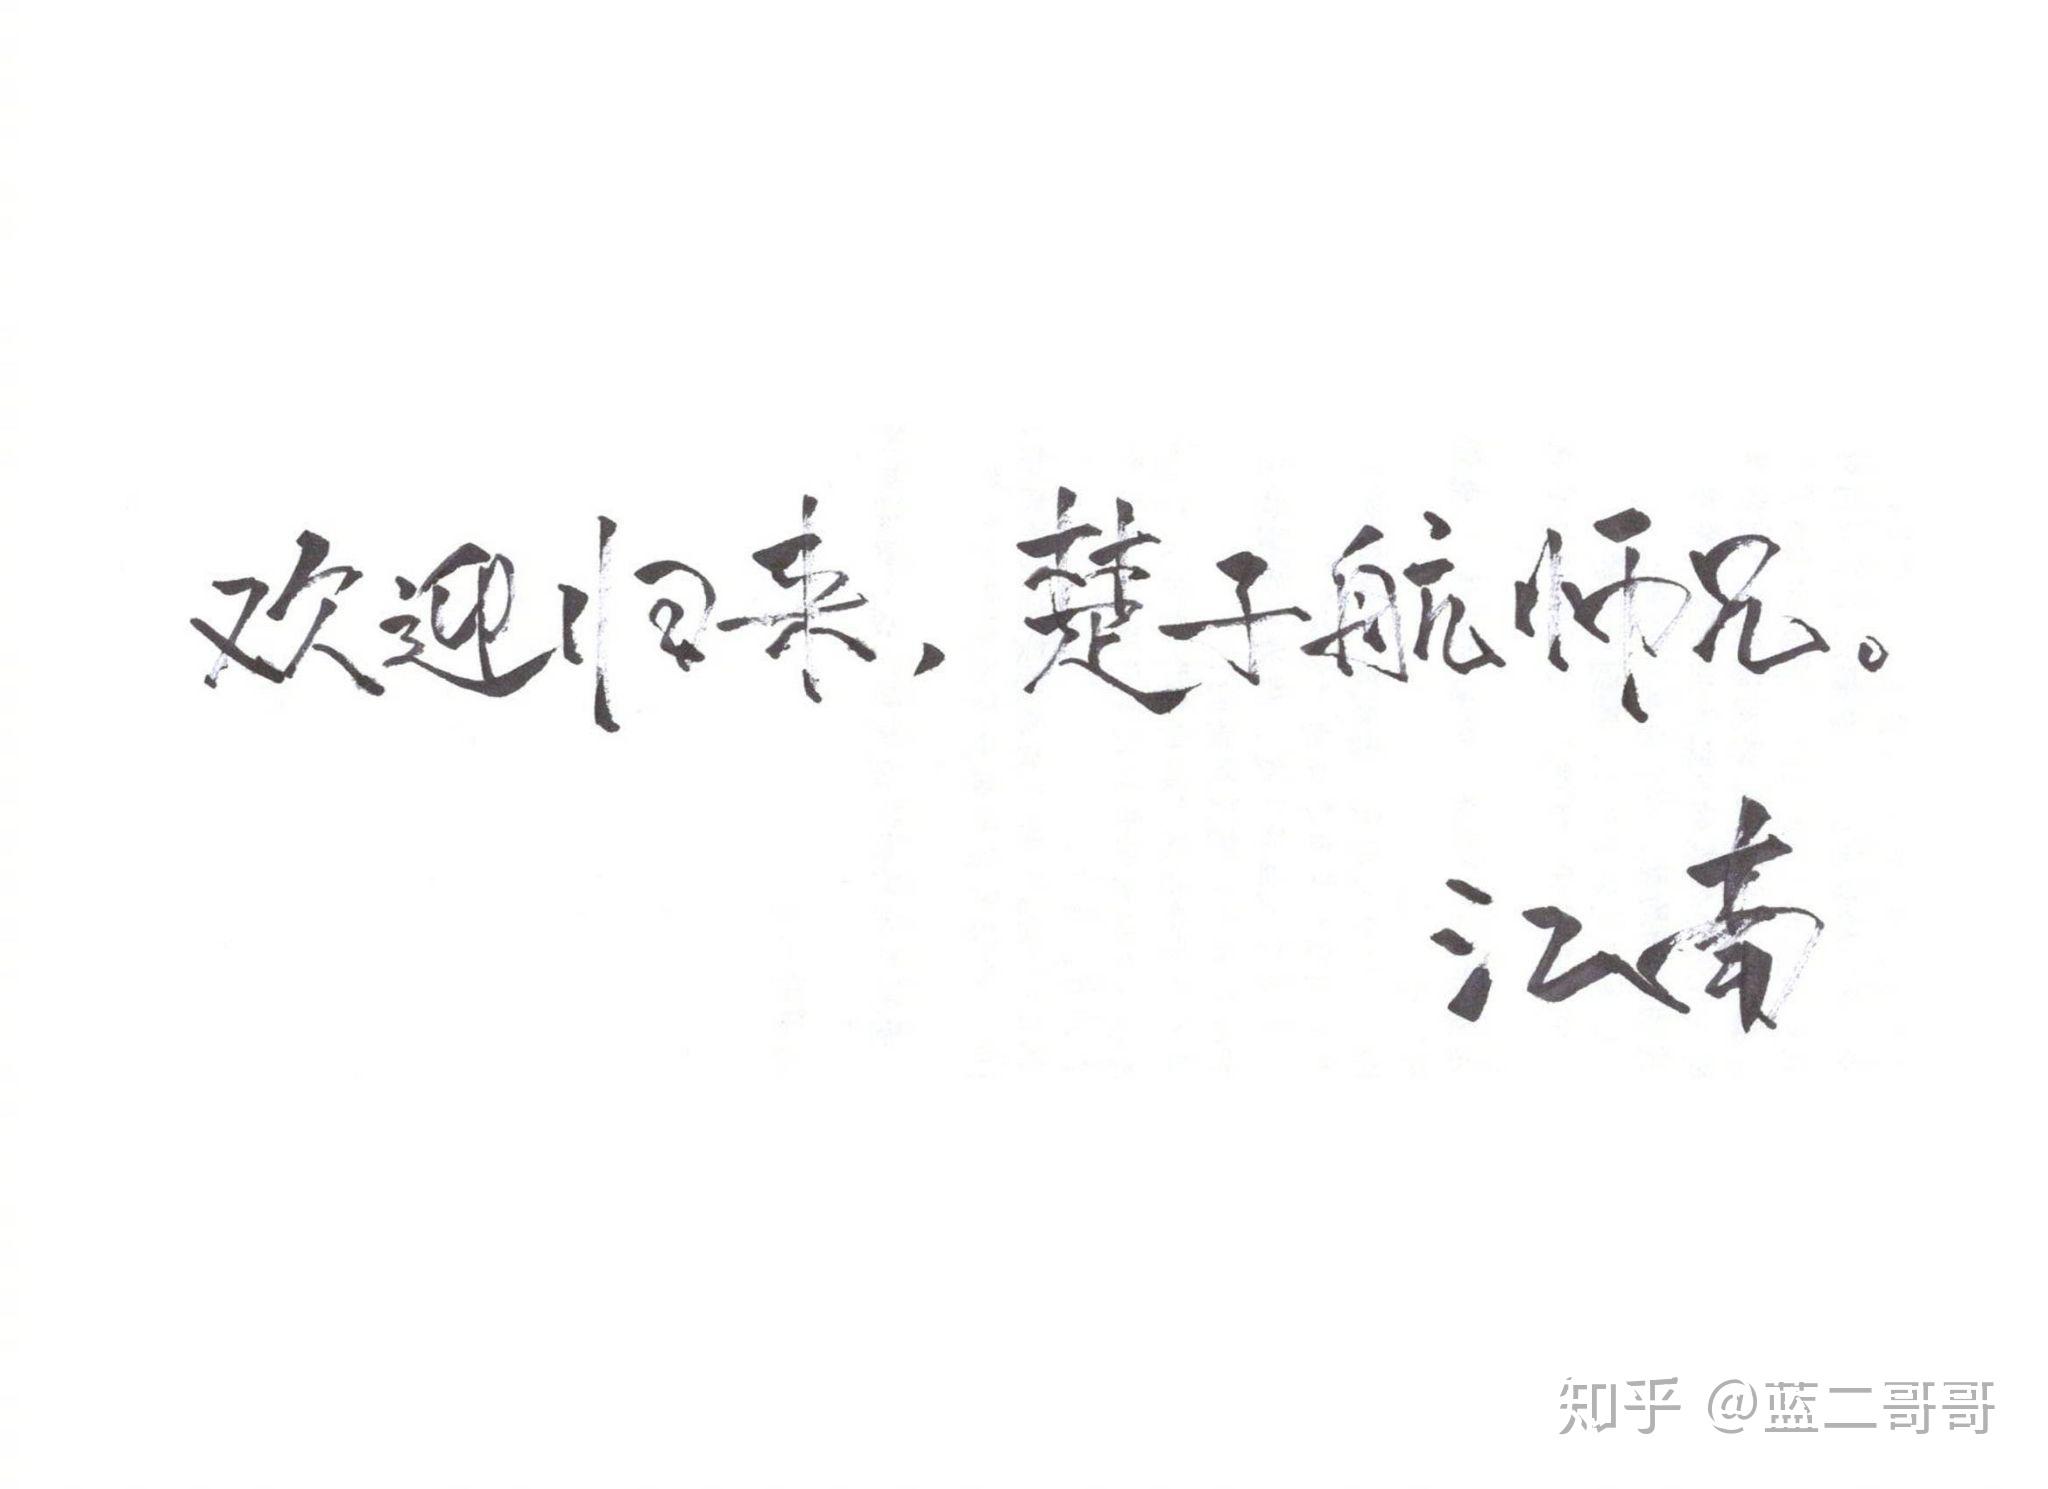 欢迎归来，楚子航师兄。
江南
知乎 @蓝二哥哥